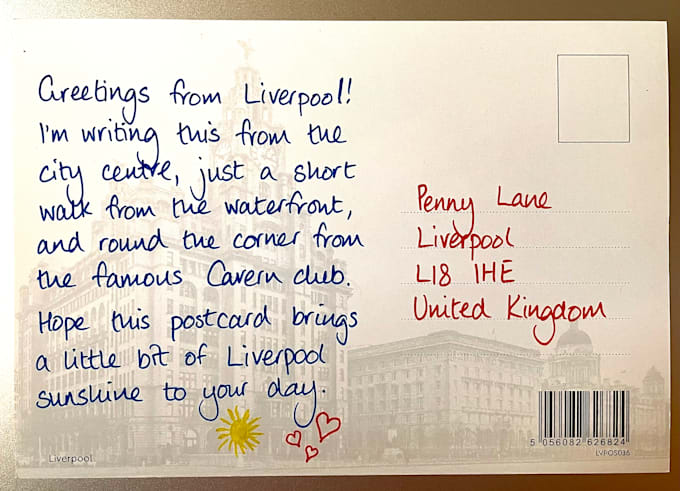 Greetings from Liverpool!
I'm writing this from the
city centre, just a short
walk from the waterfront,
and round the corner from
the famous Cavern club.
Hope this postcard brings
a little bit of Liverpool
sunshine to your day.
Penny Lane
Liverpool
L18 1HE
United Kingdom
5 056082 626824
LVPOS036
Liverpool